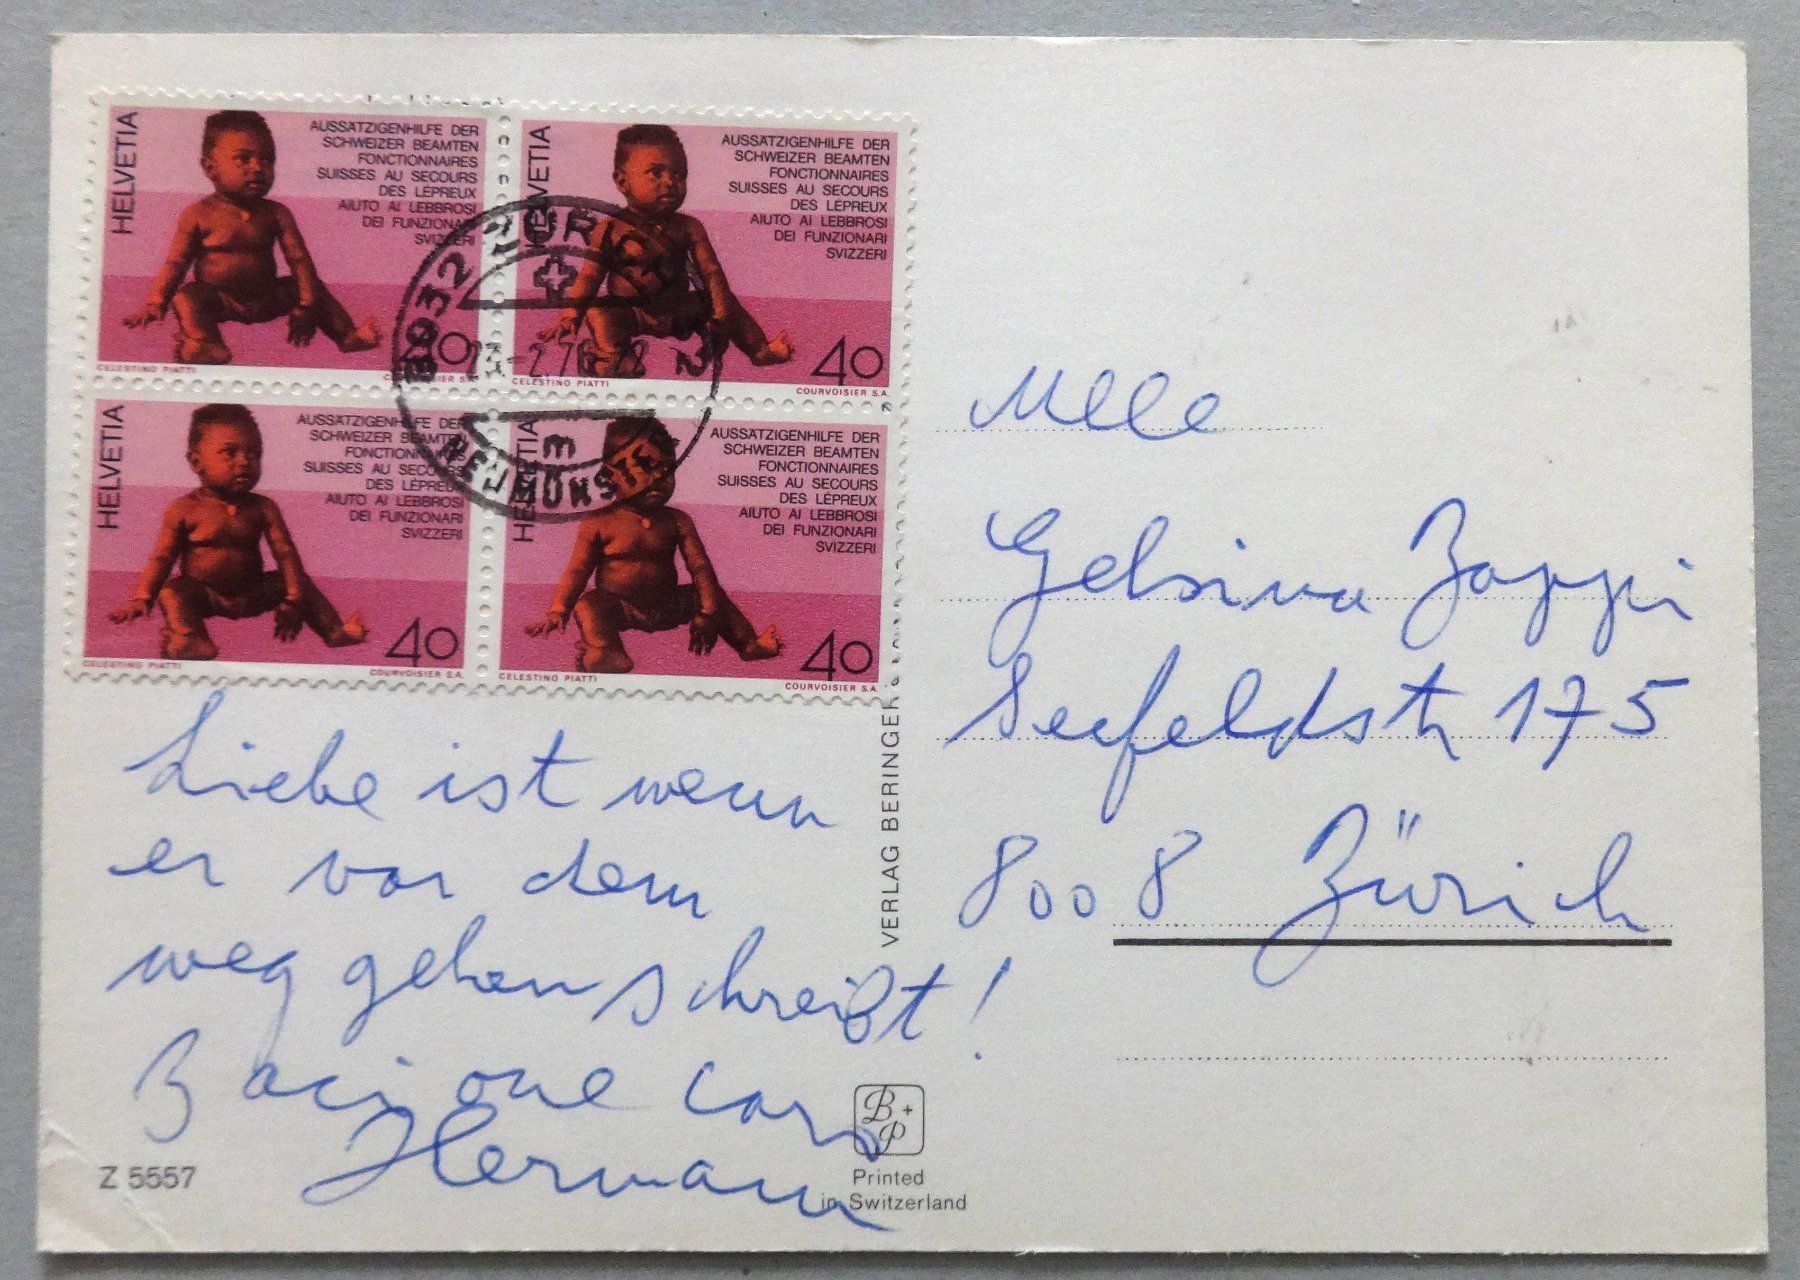 HELVETIA
AUSSÄTZIGENHILFE DER
SCHWEIZER BEAMTEN
FONCTIONNAIRES
SUISSES AU SECOURS
DES LÉPREUX
AIUTO AI LEBBROSI
DEI FUNZIONARI
SVIZZERI
40
CELESTINO PIATTI
COURVOISIER S.A.
HELVETIA
AUSSÄTZIGENHILFE DER
SCHWEIZER BEAMTEN
FONCTIONNAIRES
SUISSES AU SECOURS
DES LÉPREUX
AIUTO AI LEBBROSI
DEI FUNZIONARI
SVIZZERI
40
CELESTINO PIATTI
COURVOISIER S.A.
HELVETIA
AUSSÄTZIGENHILFE DER
SCHWEIZER BEAMTEN
FONCTIONNAIRES
SUISSES AU SECOURS
DES LÉPREUX
AIUTO AI LEBBROSI
DEI FUNZIONARI
SVIZZERI
40
CELESTINO PIATTI
COURVOISIER S.A.
HELVETIA
AUSSÄTZIGENHILFE DER
SCHWEIZER BEAMTEN
FONCTIONNAIRES
SUISSES AU SECOURS
DES LÉPREUX
AIUTO AI LEBBROSI
DEI FUNZIONARI
SVIZZERI
40
CELESTINO PIATTI
COURVOISIER S.A.
8032 ZÜRICH 32
NEUMÜNSTER
Liebe ist wenn
er vor dem
weg gehen schreibt!
Hermann
Z 5557
VERLAG BERINGER
B+P
Printed
in Switzerland
Mlle
Gelsina Zappi
Seefeldstr 175
8008 Zürich